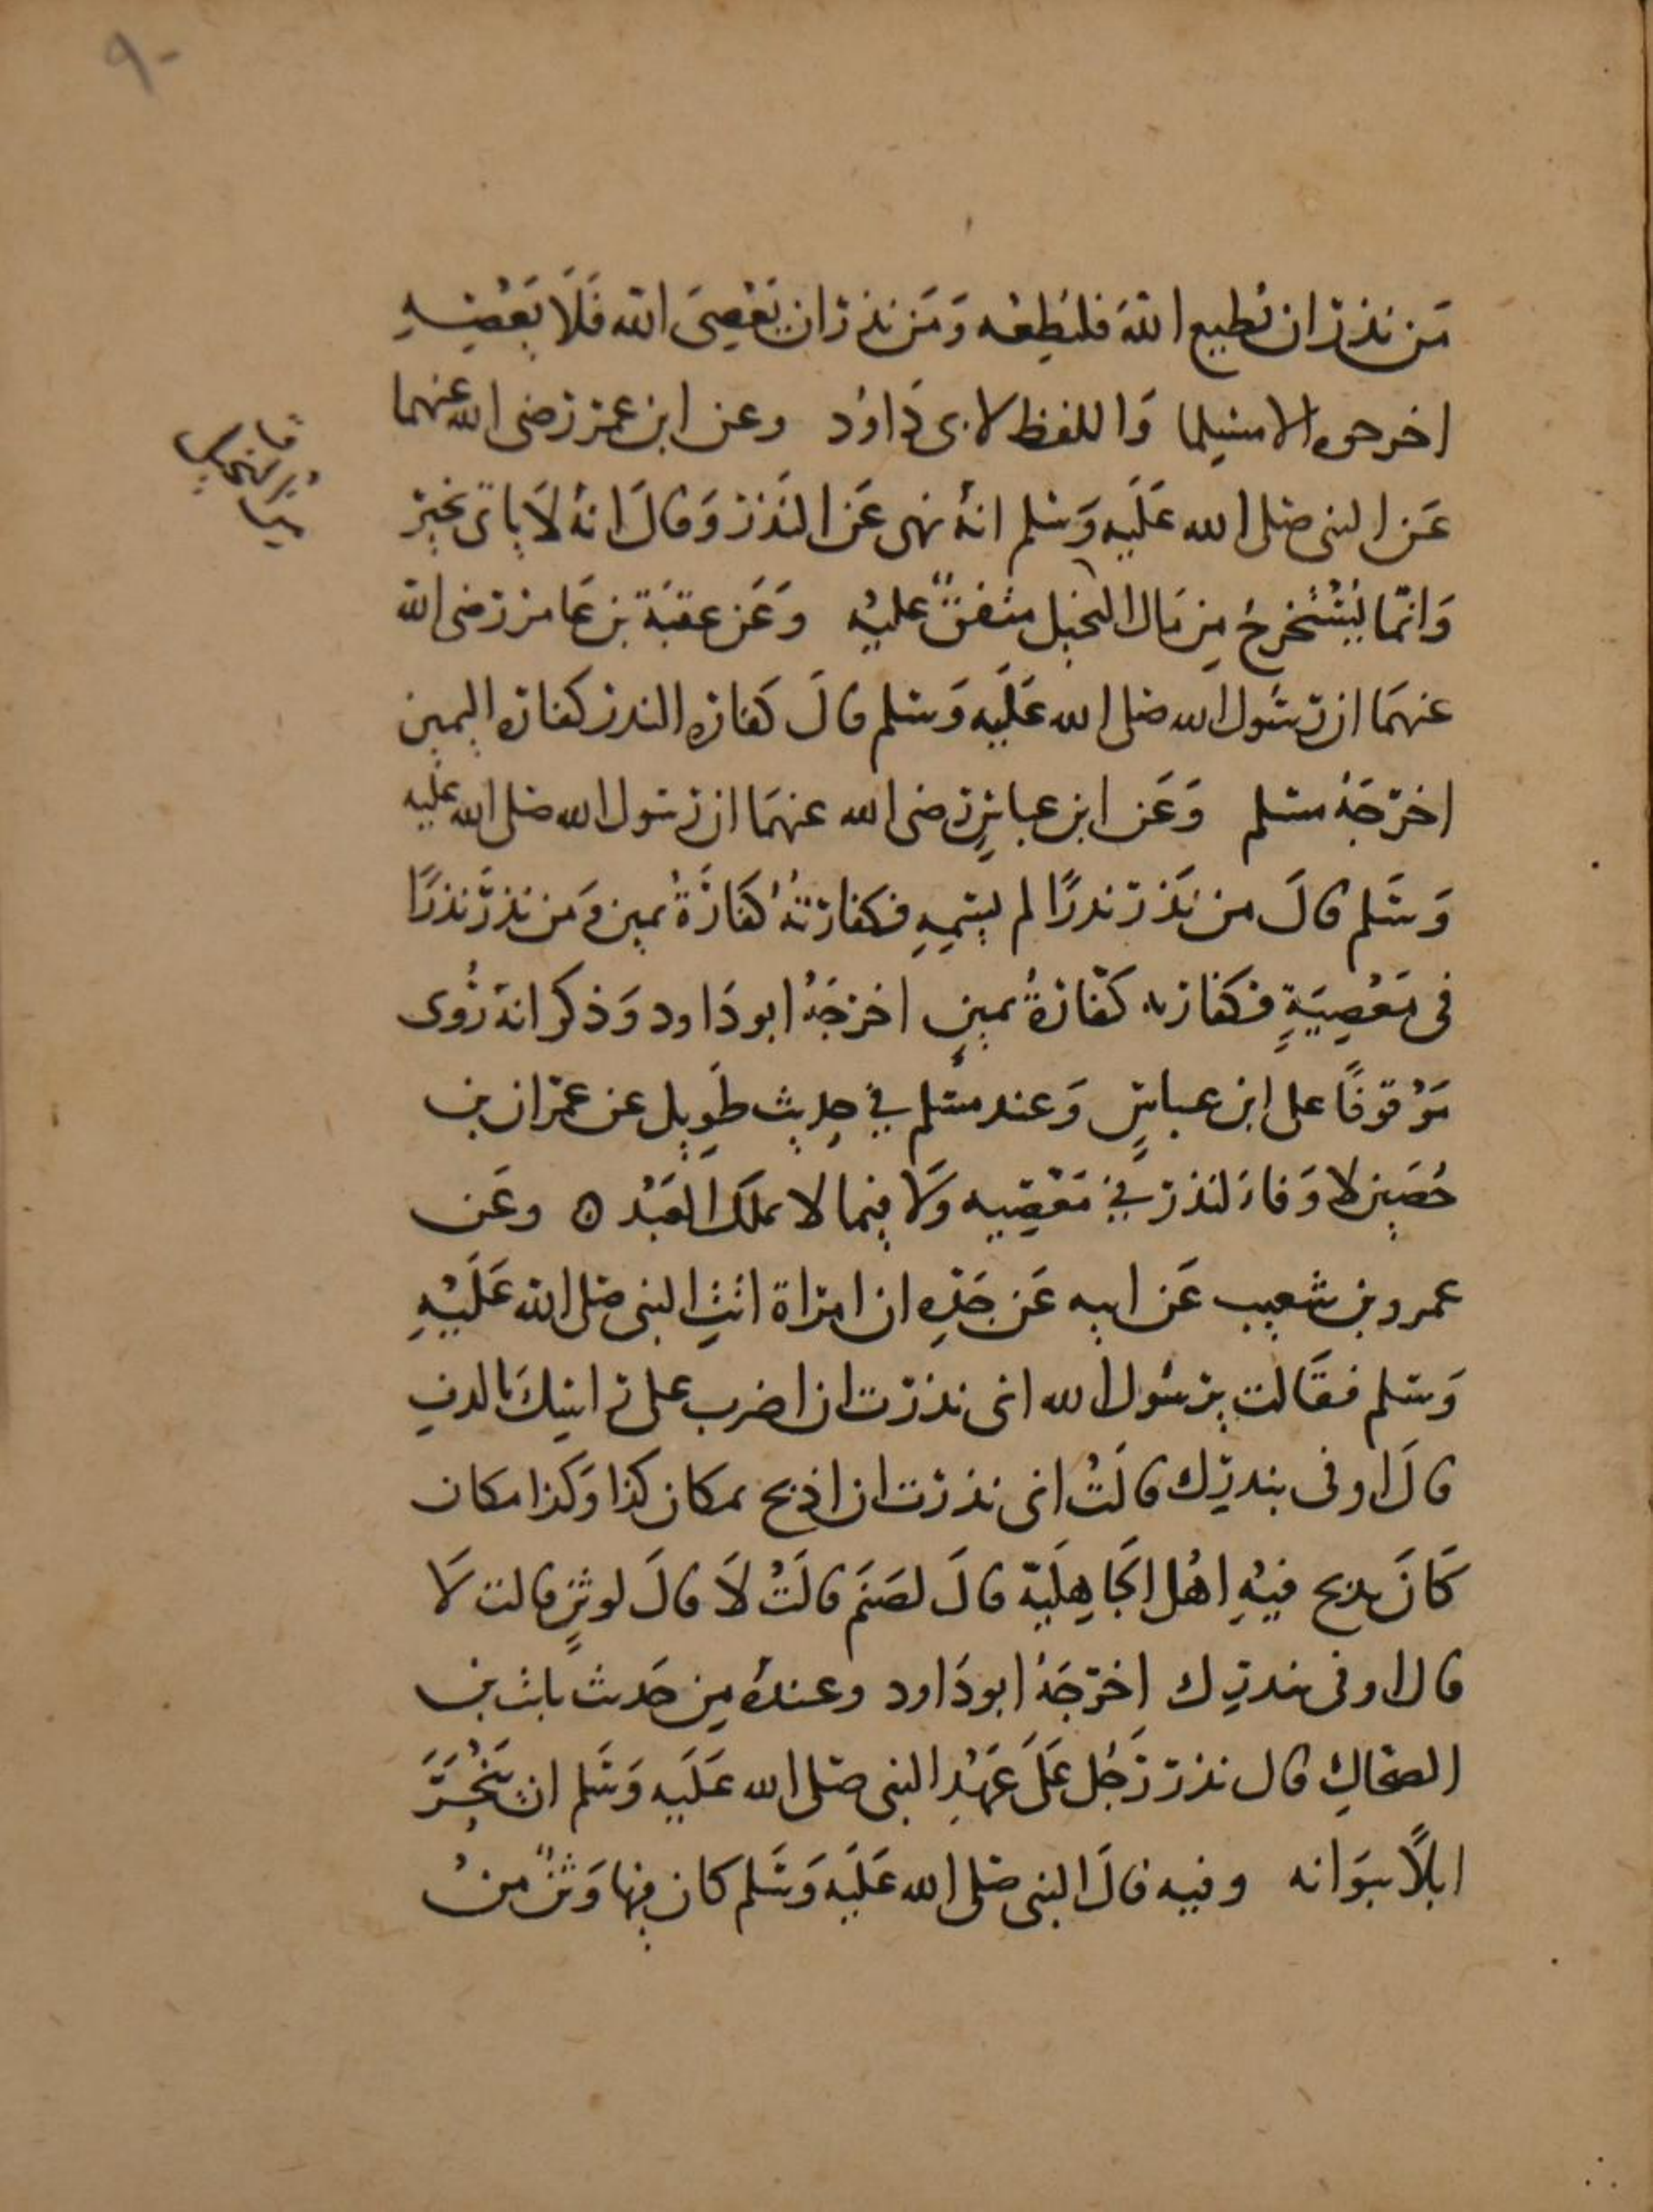 ٩٠
مَن نذر ان يُطيع اللهَ فليُطِعْه وَمَن نذر ان يَعْصِىَ الله فَلَا يَعْصِيهِ
اخرجوه الا مسلما وَاللفظ لابى دَاوُد وعن ابن عمر رضى الله عنهما
عَن النبى صلى الله عَلَيه وَسلم انهُ نهى عَن النَذر وَقالَ انهُ لَا ياتى بخيرٍ
وَانمّا يُسْتَخرجُ مِن مَال البخيل متفقٌ عليْهِ وَعَن عقبَة بن عَامر رضى الله
عنهمَا ان رسُول الله صلى الله عَلَيه وَسَلم قالَ كفارة الندر كفارة اليمين
اخرَجَهُ مسلم وَعَن ابن عباسٍ رضى الله عنهمَا ان رسول الله صلى الله عليه
وَسَلم قالَ من نَذر نذرًا لم يسَمِهِ فكفارتهُ كفَارَةُ يمين وَمن نذرَ نذرًا
فى مَعْصِيَةٍ فكفارته كفّارةُ يمينٍ اخرجَهُ ابو دَاود وَذكر انهُ رُوى
مَوْقوفًا على ابن عباسٍ وَعند مسُلم في حدِيث طَويل عن عمرَان بن
حُصَين لا وَفاءَ لنذر فيْ مَعْصِيه وَلَا فيما لا يملك العَبْد ه وعَن
عمرو بن شعيب عَن ابيه عَن جَدّهِ ان امراة اتتِ النبى صلى الله عَلَيْهِ
وَسلم فقَالت يرسُول الله انى نذرت ان اضرب على راسِكَ بالدفِ
قالَ اوفى بندرِك قالَتْ انى نذرت ان اذبح بمكان كذا وَكذا مكان
كَانَ يذبح فيْهِ اهْل الجَاهِليّة قالَ لصَنَم قالَتْ لَا قالَ لوثنٍ قالت لَا
قال اوفى بندرِك اخرَجَهُ ابو دَاود وعندهُ مِن حَديث ثابت بن
الضحّاكِ قال نذر رَجُل عَلَى عَهْدِ النبى صلى الله عَلَيه وَسَلم ان يَنْحَرَ
ابلًا ببوَانه وفيه قالَ النبى صلى الله عَلَيه وَسَلم كان فيها وَثنٌ منْ